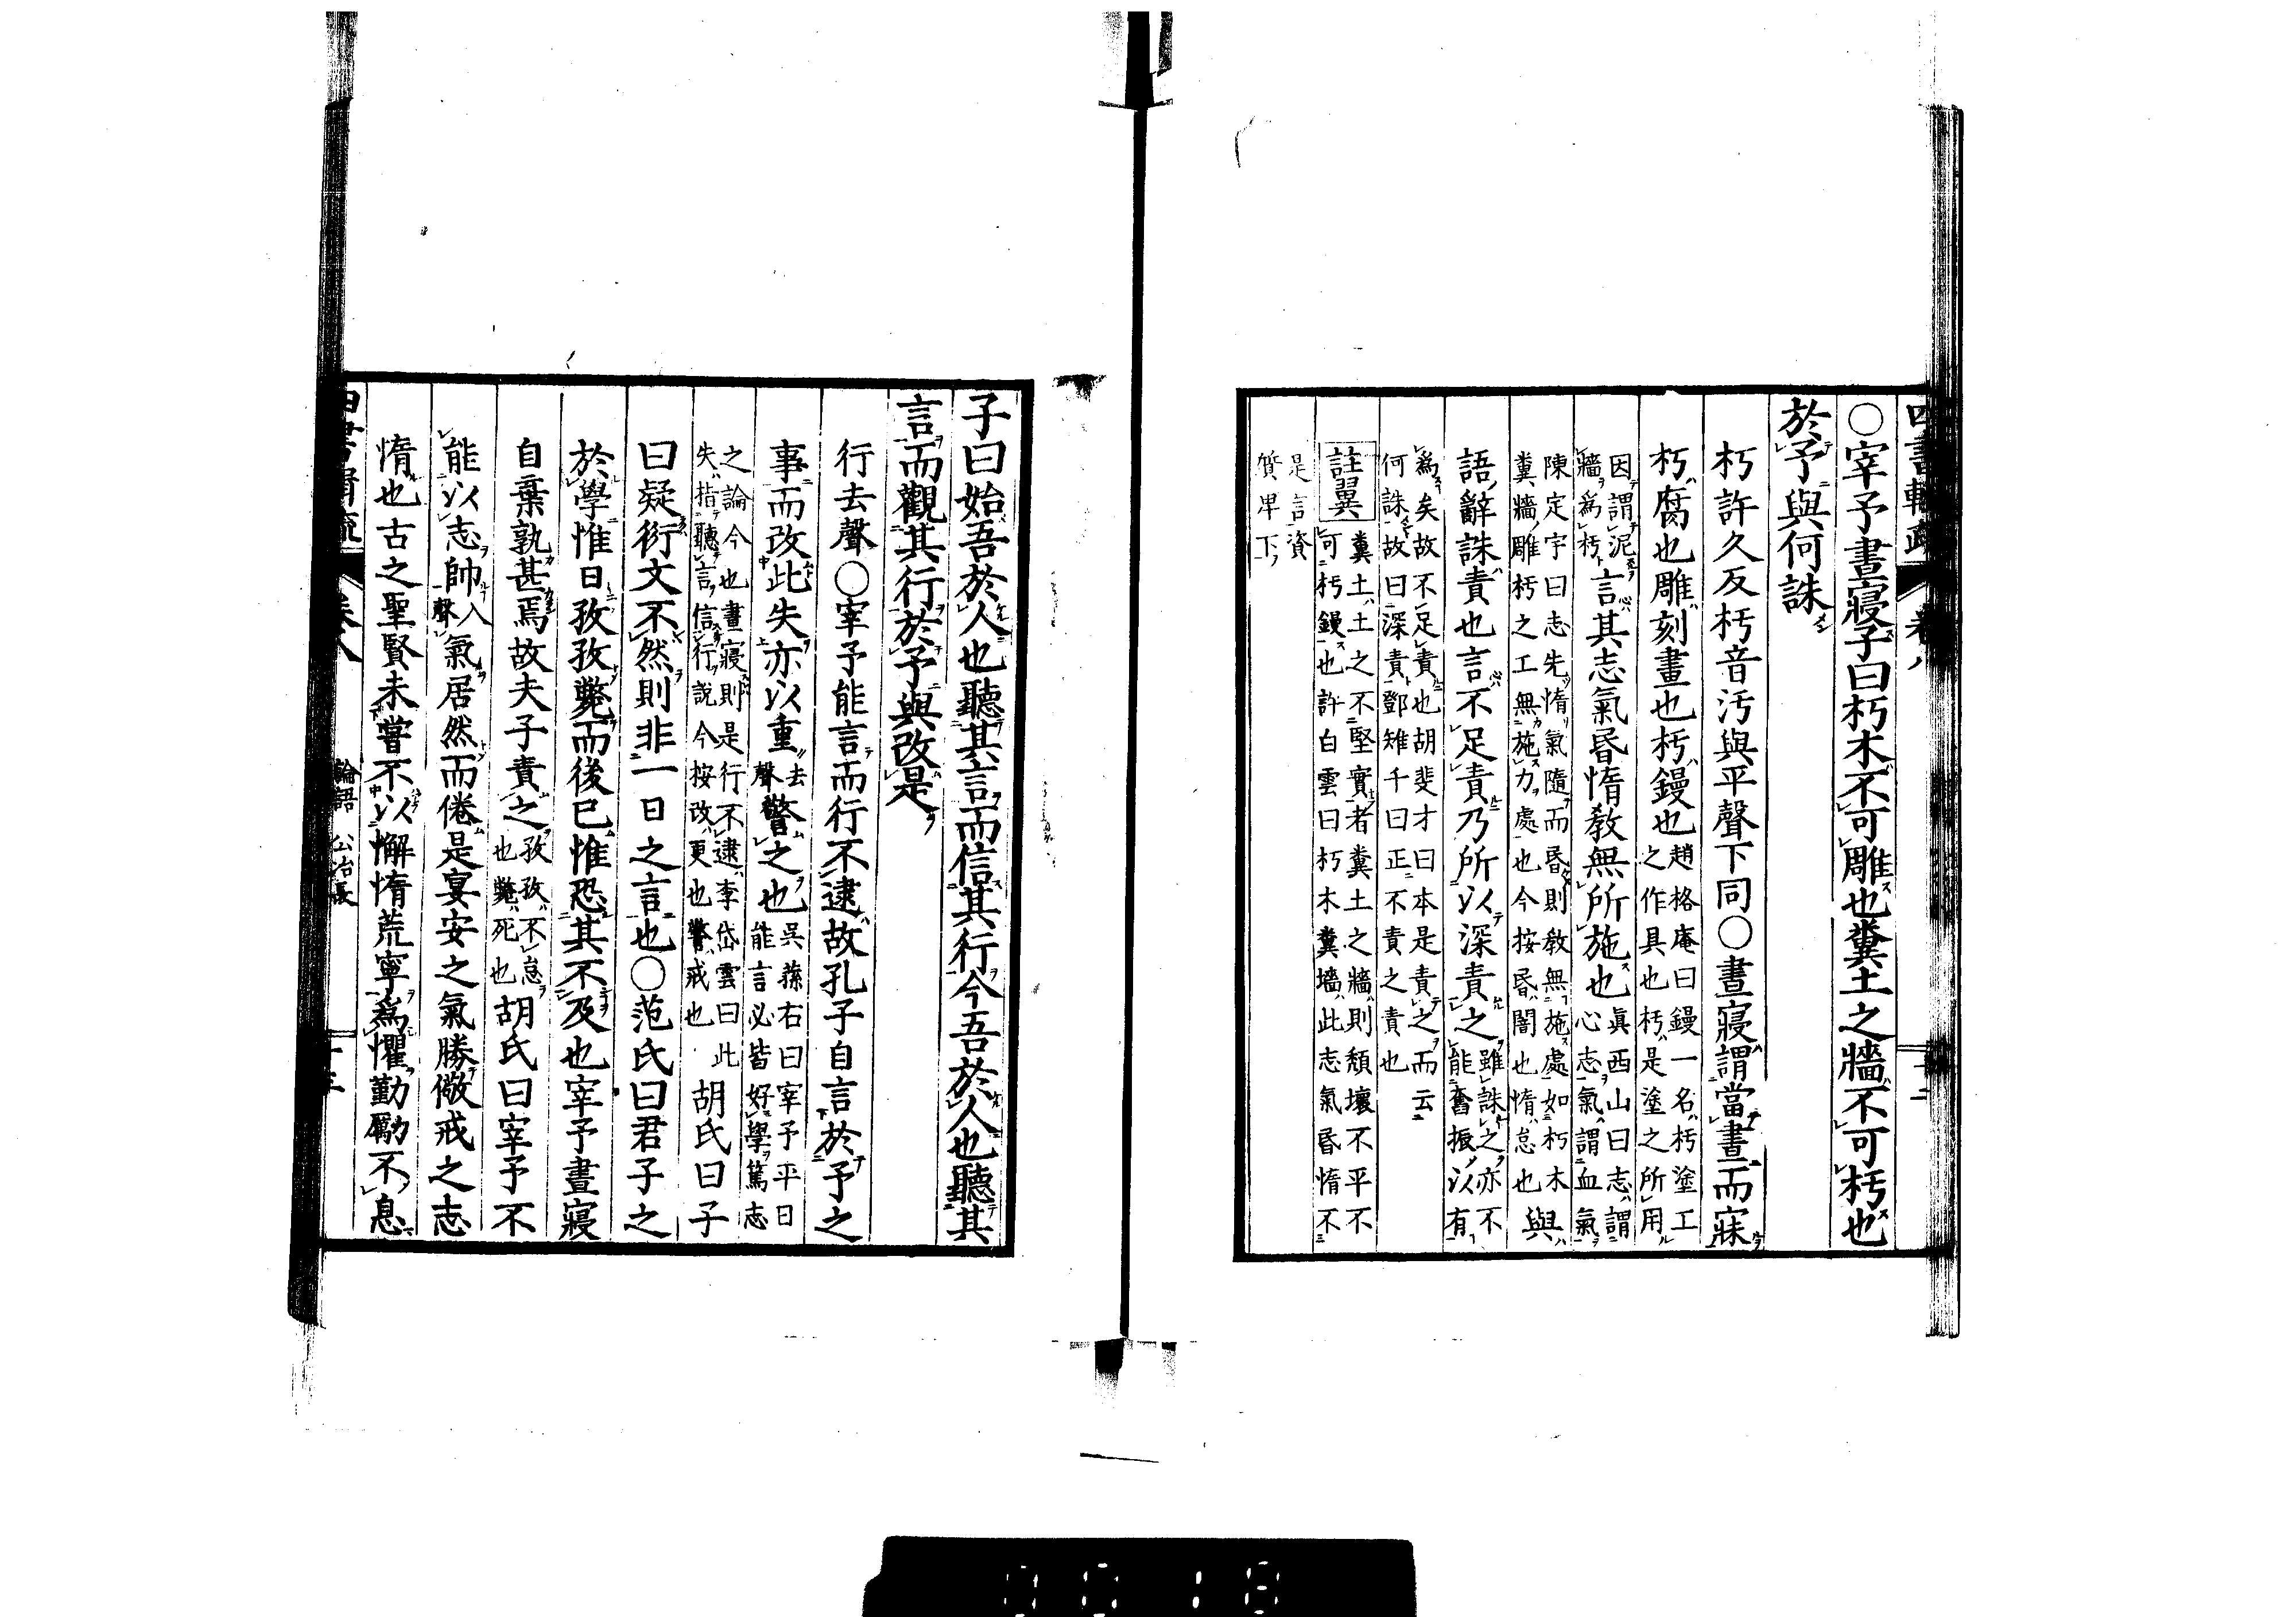 〇宰予晝寢子曰朽木不可雕也糞土之牆不可杇也
於予與何誅
朽許久反杇音汚與平聲下同〇晝寢謂當晝而寐
朽腐也雕刻畫也杇鏝也
趙格庵曰鏝一名杇塗工
之作具也杇是塗之所用
因謂泥
牆爲杇
言其志氣昏惰敎無所施也
眞西山曰志謂
心志氣謂血氣
陳定宇曰志先惰氣隨而昏則敎無施處如朽木
糞牆雕杇之工無施力處也今按昏闇也惰怠也與
語辭誅責也言不足責乃所以深責之
雖誅之亦不
能奮振以有
爲矣故不足責也胡斐才曰本是責之而云
何誅故曰深責鄧雉千曰正不責之責也
註翼
糞土土之不堅實者糞土之牆則頹壞不平不
可杇鏝也許白雲曰朽木糞墻此志氣昏惰不
是言資
質卑下
子曰始吾於人也聽其言而信其行今吾於人也聽其
言而觀其行於予與改是
行去聲〇宰予能言而行不逮故孔子自言於予之
事而改此失亦以重
去
聲
警之也
吳蓀右曰宰予平日
能言必皆好學篤志
之論今也晝寢則是行不逮李岱雲曰此
失指聽言信行說今按改更也警戒也
胡氏曰子
曰疑衍文不然則非一日之言也〇范氏曰君子之
於學惟日孜孜斃而後已惟恐其不及也宰予晝寢
自棄孰甚焉故夫子責之
孜孜不怠
也斃死也
胡氏曰宰予不
能以志帥
入
聲
氣居然而倦是宴安之氣勝儆戒之志
惰也古之聖賢未嘗不以懈惰荒寧爲懼勤勵不息
論語 公冶長